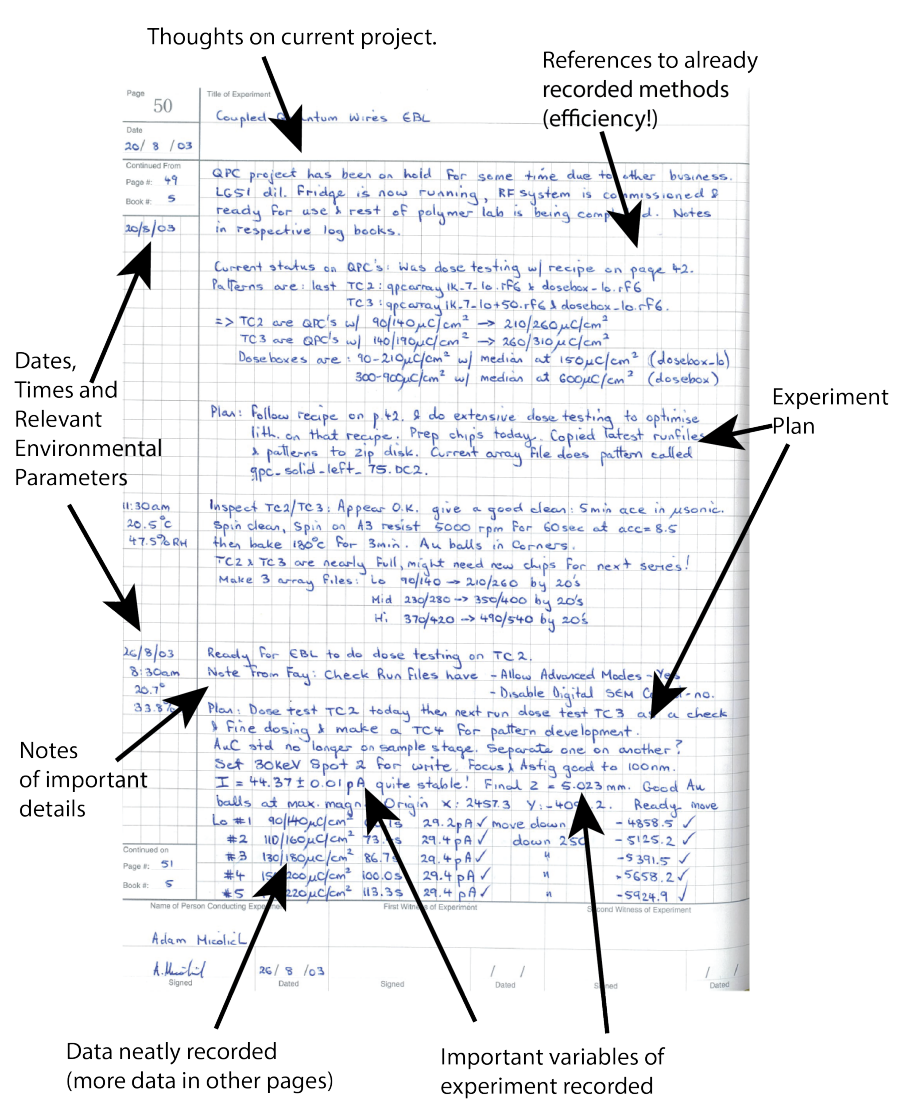 Thoughts on current project.
References to already
recorded methods
(efficiency!)
Page 50
Title of Experiment
Coupled Quantum Wires EBL
Date
20/ 8 /03
Continued From
Page #: 49
Book #: 5
20/8/03
QPC project has been on hold for some time due to other business.
LG51 dil. Fridge is now running, RF system is commissioned &
ready for use & rest of polymer lab is being comp d. Notes
in respective log books.
Current status on QPC's: Was dose testing w/ recipe on page 42.
Patterns are: last TC2: qpcarray1K-7-lo.rf6 & dosebox-lo.rf6
TC3: qpcarray1K-7-lo+50.rf6 & dosebox-lo.rf6.
=> TC2 are QPC's w/ 90/140µC/cm² → 210/260µC/cm²
TC3 are QPC's w/ 140/190µC/cm² → 260/310µC/cm²
Doseboxes are: 90-210µC/cm² w/ median at 150µC/cm² (dosebox-lo)
300-900µC/cm² w/ median at 600µC/cm² (dosebox)
Dates,
Times and
Relevant
Environmental
Parameters
Experiment
Plan
Plan: Follow recipe on p.42. & do extensive dose testing to optimise
lith. on that recipe. Prep chips today. Copied latest runfiles
& patterns to zip disk. Current array file does pattern called
qpc_solid_left_75.DC2.
11:30am
20.5°C
47.5%RH
Inspect TC2/TC3: Appear O.K. give a good clean: 5min ace in µsonic.
Spin clean, Spin on A3 resist 5000 rpm for 60sec at acc=8.5
then bake 180°C for 3min. Au balls in corners.
TC2 & TC3 are nearly full, might need new chips for next series!
Make 3 array files: Lo 90/140 → 210/260 by 20's
Mid 230/280 → 350/400 by 20's
Hi 370/420 → 490/540 by 20's
26/8/03
8:30am
20.7°
33.8%
Ready for EBL to do dose testing on TC2.
Note from Fay: Check Run Files have - Allow Advanced Modes - Yes
- Disable Digital SEM - no.
Plan: Dose test TC2 today then next run dose test TC3 as a check
& fine dosing & make a TC4 for pattern development.
AuC std no longer on sample stage. Separate one on another?
Set 30keV Spot 2 for write. Focus & Astig good to 100nm.
I = 44.37 ± 0.01 pA quite stable! Final Z = 5.023mm. Good Au
balls at max. magn. Origin X: 2457.3 Y: Ready move
Lo #1 90/140µC/cm² 29.2pA ✓ move down -4858.5 ✓
#2 110/160µC/cm² 29.4pA ✓ down 250 -5125.2 ✓
#3 130/180µC/cm² 86.7s 29.4pA ✓ " -5391.5 ✓
#4 200µC/cm² 100.0s 29.4pA ✓ " -5658.2 ✓
#5 220µC/cm² 113.3s 29.4pA ✓ " -5924.9 ✓
Notes
of important
details
Continued on
Page #: 51
Book #: 5
Name of Person Conducting Experiment
First Witness of Experiment
Second Witness of Experiment
Adam Micolich
26/ 8 /03
/ /
/ /
Signed
Dated
Signed
Dated
Signed
Dated
Data neatly recorded
(more data in other pages)
Important variables of
experiment recorded